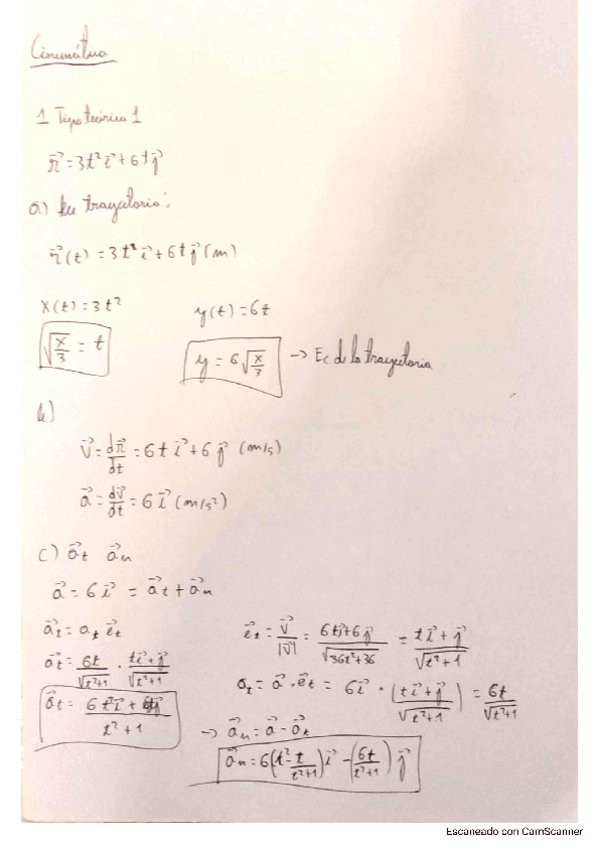 Cinemática
1 Tipo teórico 1
r⃗ = 3t² i⃗ + 6t j⃗
a) Su trayectoria:
r⃗(t) = 3t² i⃗ + 6t j⃗ (m)
x(t) = 3t² y(t) = 6t
√(x/3) = t y = 6√(x/3) → Ec de la trayectoria
b)
v⃗ = dr⃗/dt = 6t i⃗ + 6 j⃗ (m/s)
a⃗ = dv⃗/dt = 6 i⃗ (m/s²)
c) a⃗t a⃗n
a⃗ = 6 i⃗ = a⃗t + a⃗n
a⃗t = at e⃗t e⃗t = v⃗/|v⃗| = (6t i⃗ + 6 j⃗)/√(36t²+36) = (t i⃗ + j⃗)/√(t²+1)
a⃗t = 6t/√(t²+1) · (t i⃗ + j⃗)/√(t²+1) at = a⃗ · e⃗t = 6 i⃗ · ((t i⃗ + j⃗)/√(t²+1)) = 6t/√(t²+1)
a⃗t = (6t² i⃗ + 6t j⃗)/(t²+1)
→ a⃗n = a⃗ - a⃗t
a⃗n = 6(t² - t/(t²+1)) i⃗ - (6t/(t²+1)) j⃗
Escaneado con CamScanner